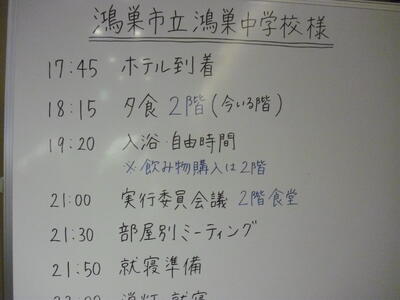 鴻巣市立鴻巣中学校様
17:45 ホテル到着
18:15 夕食 2階(今いる階)
19:20 入浴・自由時間
※飲み物購入は2階
21:00 実行委員会議 2階食堂
21:30 部屋別ミーティング
21:50 就寝準備
消灯 就寝